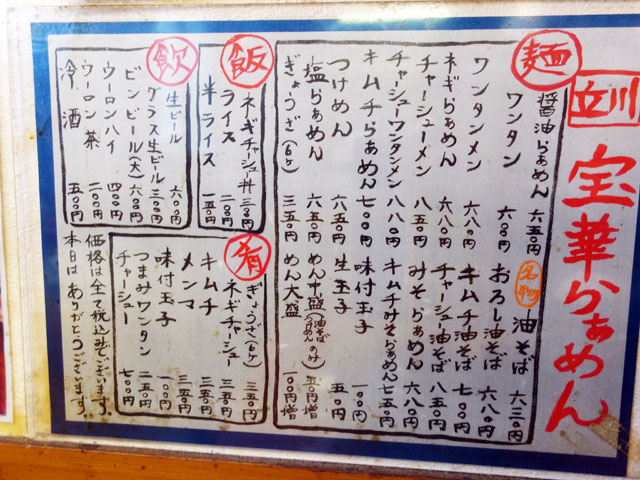 立川
宝華らぁめん
麺
醤油らぁめん 六五〇円
ワンタン 六〇〇円
ワンタンメン 六八〇円
ネギらぁめん 六八〇円
チャーシューメン 八五〇円
チャーシューワンタンメン 八八〇円
キムチらぁめん 七〇〇円
つけめん 六五〇円
塩らぁめん 六五〇円
ぎょうざ(6ヶ) 三五〇円
名物 油そば 六三〇円
おろし油そば 六八〇円
キムチ油そば 七〇〇円
チャーシュー油そば 八五〇円
みそらぁめん 六八〇円
キムチみそらぁめん 七五〇円
味付玉子 一〇〇円
生玉子 五〇円
めん中盛(油そば らぁめんのみ) 五〇円増
めん大盛 一〇〇円増
飯
ネギチャーシュー丼 三五〇円
ライス 二〇〇円
半ライス 一五〇円
飲
生ビール 六〇〇円
グラス生ビール 三〇〇円
ビンビール(大) 六〇〇円
ウーロンハイ 四〇〇円
ウーロン茶 二〇〇円
冷酒 五〇〇円
肴
ぎょうざ(6ヶ) 三五〇円
ネギチャーシュー 三五〇円
キムチ 三五〇円
メンマ 三五〇円
味付玉子 一〇〇円
つまみワンタン 二五〇円
チャーシュー 七〇〇円
価格は全て税込みでございます。
本日はありがとうございます。